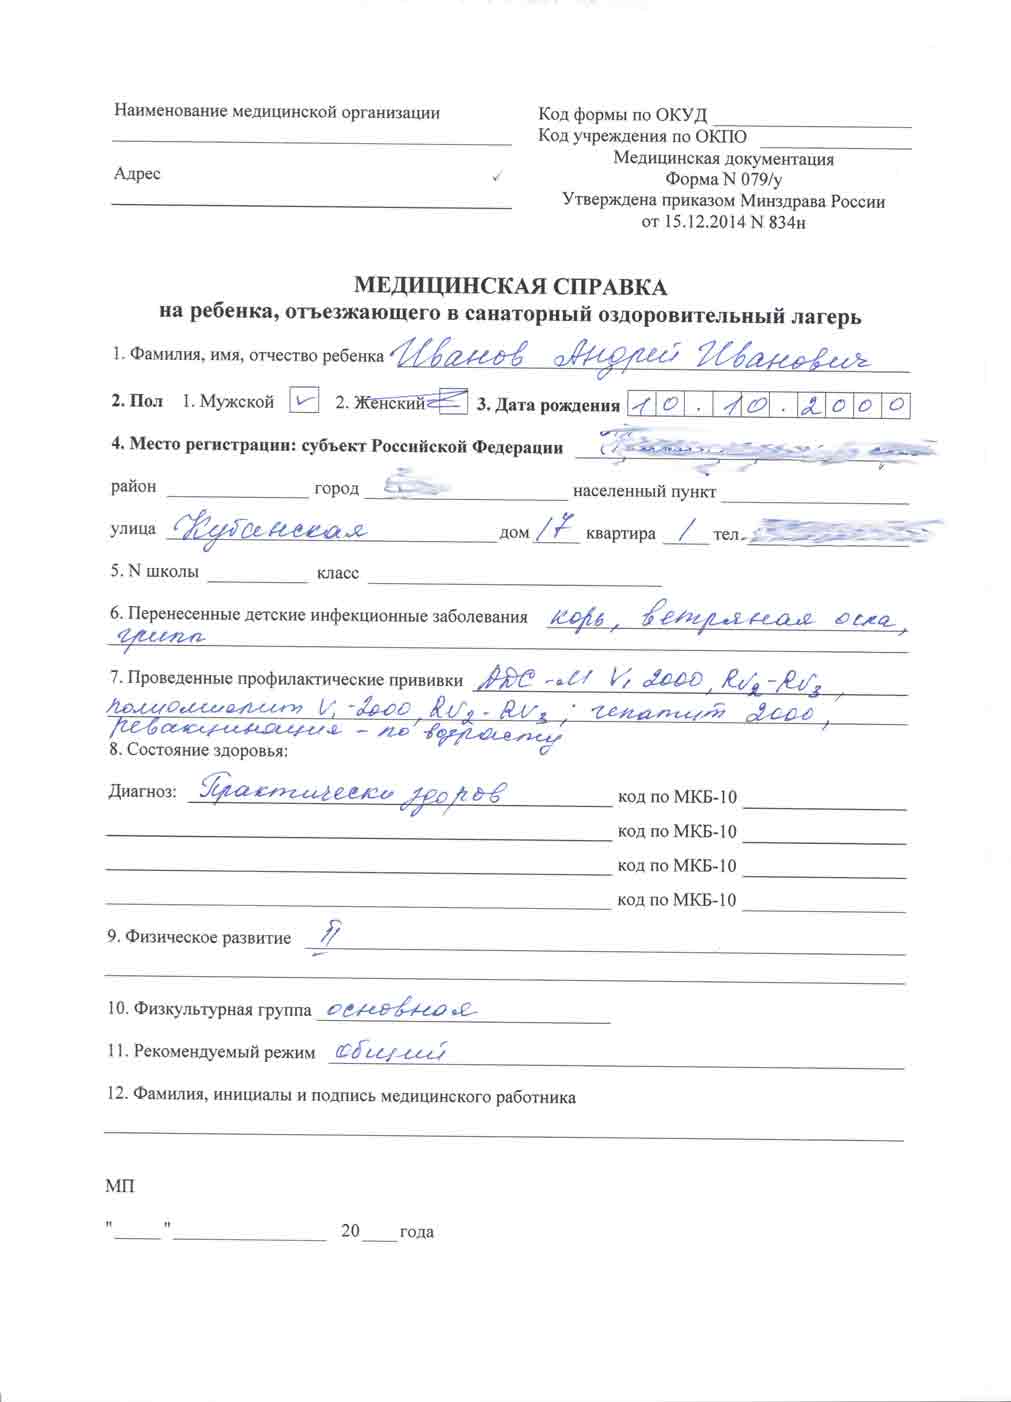 Наименование медицинской организации
Код формы по ОКУД
Код учреждения по ОКПО
Медицинская документация
Адрес
Форма N 079/у
Утверждена приказом Минздрава России
от 15.12.2014 N 834н
МЕДИЦИНСКАЯ СПРАВКА
на ребенка, отъезжающего в санаторный оздоровительный лагерь
1. Фамилия, имя, отчество ребенка Иванов Андрей Иванович
2. Пол 1. Мужской 2. Женский 3. Дата рождения 10.10.2000
4. Место регистрации: субъект Российской Федерации
район город населенный пункт
улица Кубанская дом 17 квартира 1 тел.
5. N школы класс
6. Перенесенные детские инфекционные заболевания корь, ветряная оспа,
грипп
7. Проведенные профилактические прививки АДС-М V1 2000, RV2-RV3,
полиомиелит V1-2000, RV2-RV3; гепатит 2000,
ревакцинация - по возрасту
8. Состояние здоровья:
Диагноз: Практически здоров код по МКБ-10
код по МКБ-10
код по МКБ-10
код по МКБ-10
9. Физическое развитие II
10. Физкультурная группа основная
11. Рекомендуемый режим общий
12. Фамилия, инициалы и подпись медицинского работника
МП
" " 20 года